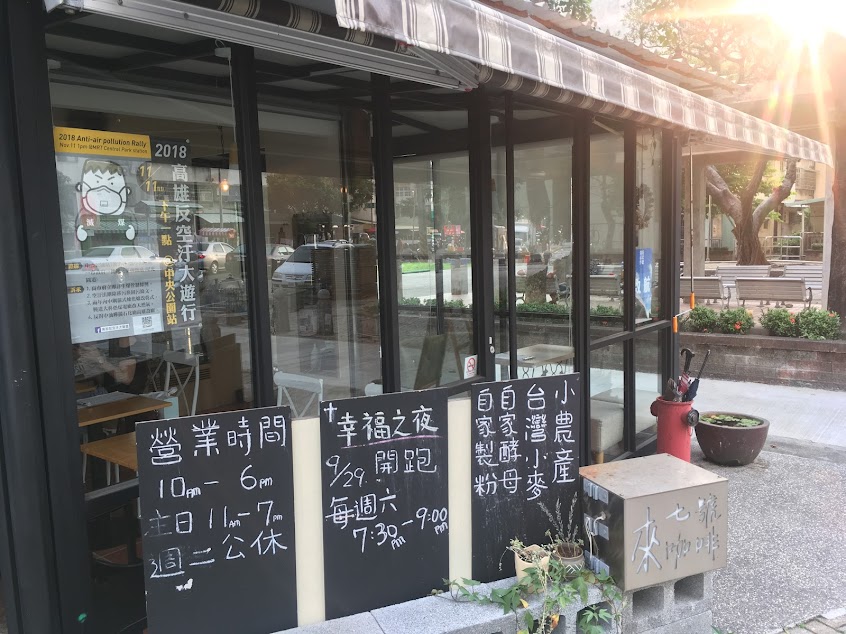 2018 Anti-air pollution Rally
Nov 11 1pm @MRT Central Park station
2018
高雄反空汙大遊行
11/11
下午一點
@中央公園站
減煤
訴求
營業時間
10am - 6pm
主日 11AM-7pm
週二公休
幸福之夜
9/29. 開跑
每週六
7:30pm-9:00pm
小農產
台灣小麥
自家酵母
自家製粉
七號
來咖啡